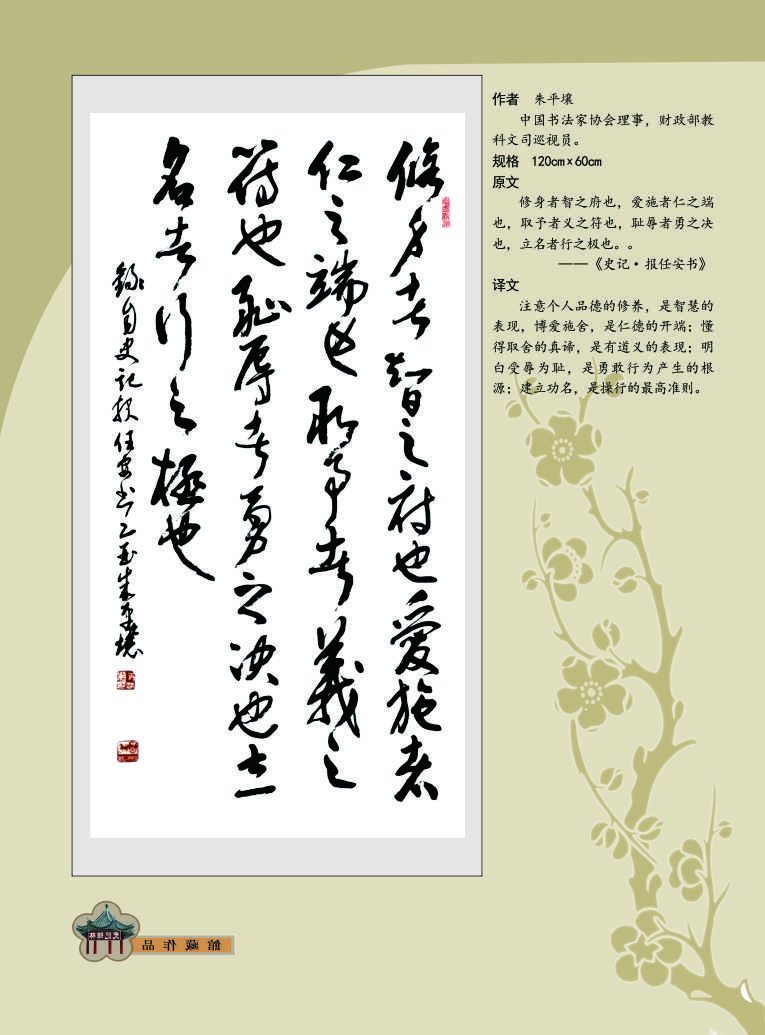 作者 朱平壤
中国书法家协会理事，财政部教
科文司巡视员。
规格 120cm×60cm
原文
修身者智之府也，爱施者仁之端
也，取予者义之符也，耻辱者勇之决
也，立名者行之极也。。
——《史记·报任安书》
译文
注意个人品德的修养，是智慧的
表现，博爱施舍，是仁德的开端；懂
得取舍的真谛，是有道义的表现；明
白受辱为耻，是勇敢行为产生的根
源；建立功名，是操行的最高准则。
修身者智之府也愛施者
仁之端也取予者義之
符也恥辱者勇之决也立
名者行之極也
錄自史记报任安书乙丑朱平壤
館藏作品